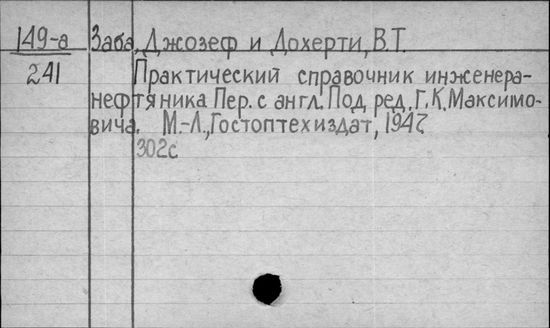 149-а Заба, Джозеф и Дохерти, В.Т.
241 Практический справочник инженера-
нефтяника Пер. с англ. Под ред. Г.К. Максимо-
вича. М.-Л., Гостоптехиздат, 1947
302с